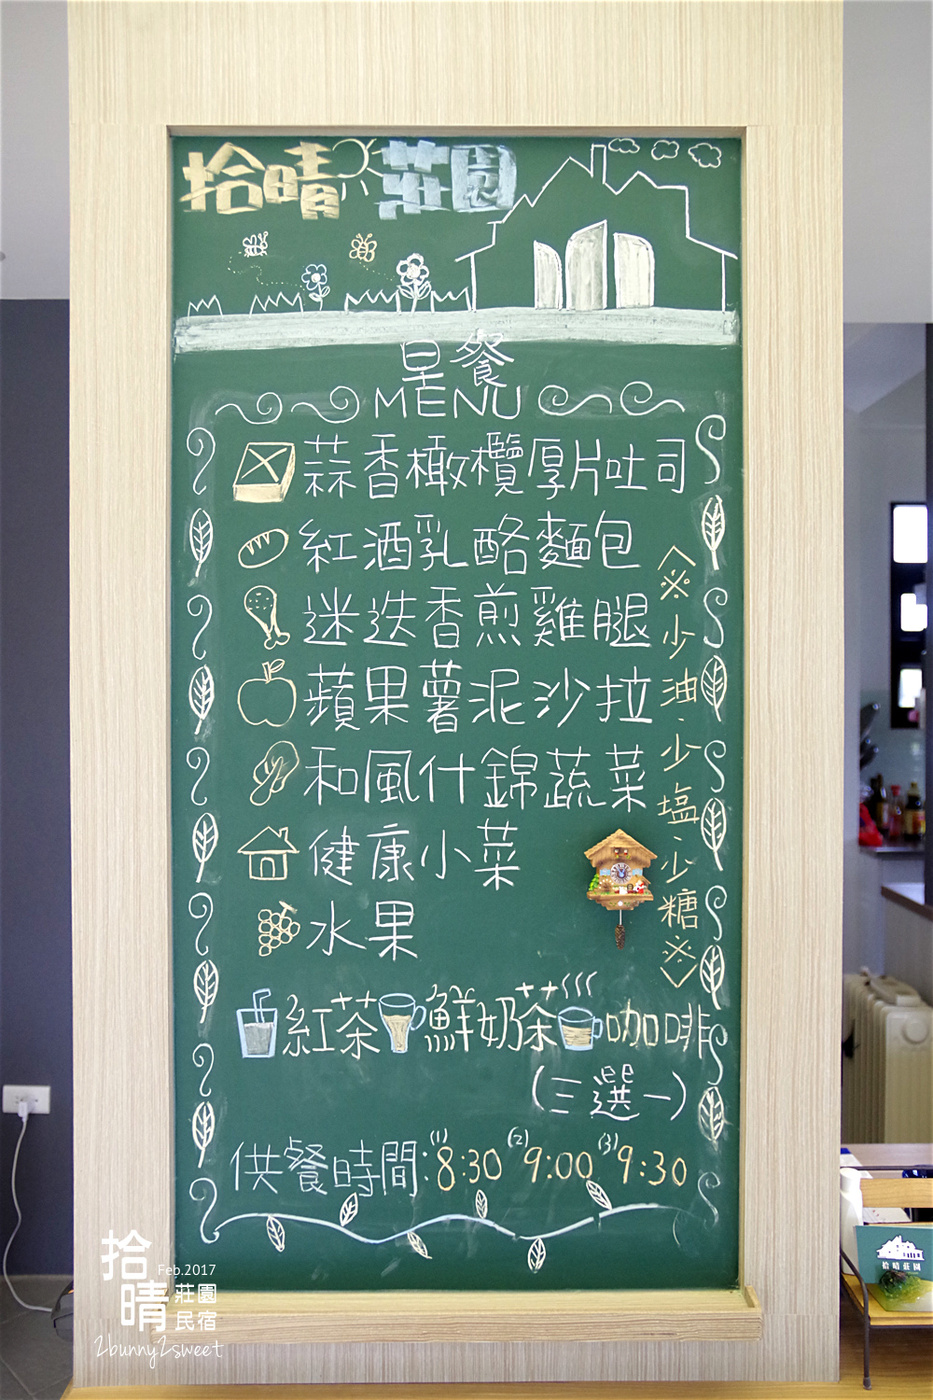 拾晴莊園
早餐
MENU
蒜香橄欖厚片吐司
紅酒乳酪麵包
迷迭香煎雞腿
蘋果薯泥沙拉
和風什錦蔬菜
健康小菜
水果
※少油.少塩.少糖※
紅茶 鮮奶茶 咖啡
(三選一)
供餐時間:(1)8:30 (2)9:00 (3)9:30
拾晴莊園
拾晴
Feb.2017
莊園
民宿
2bunny2sweet